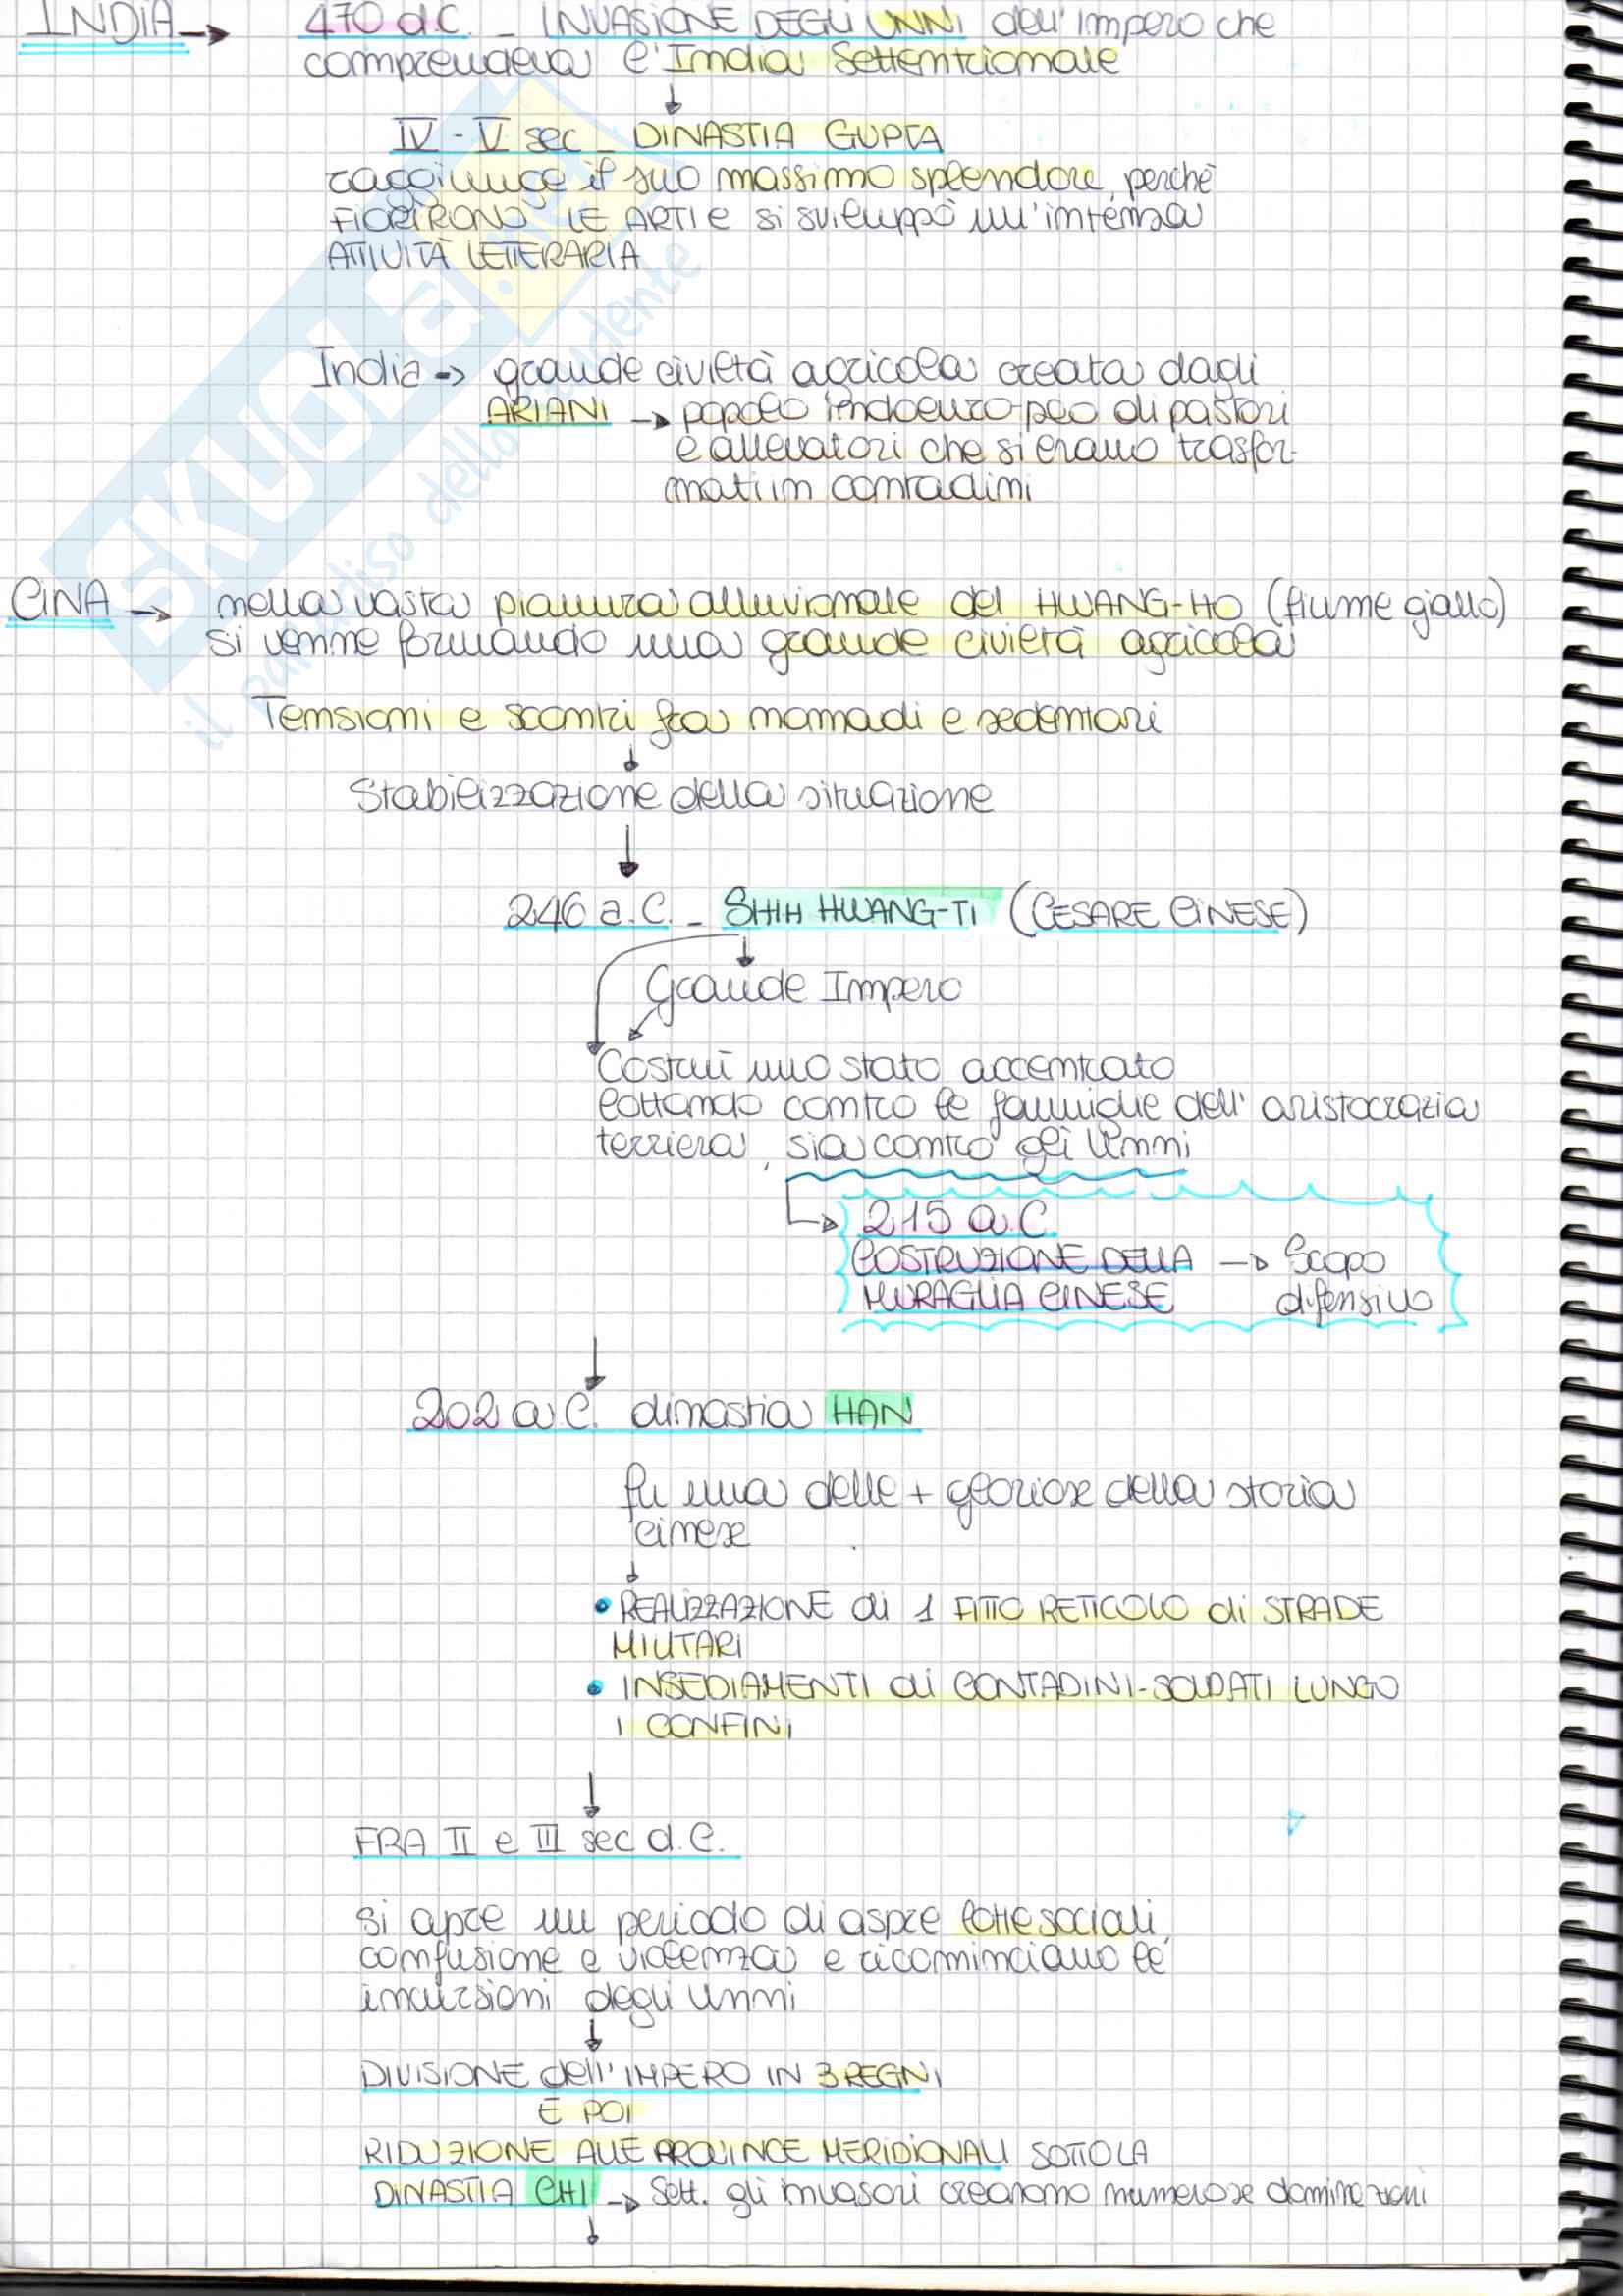 INDIA → 470 d.C. - INVASIONE DEGLI UNNI dell'impero che
comprendeva l'India Settentrionale
↓
IV - V sec - DINASTIA GUPTA
raggiunge il suo massimo splendore, perchè
FIORIRONO LE ARTI e si sviluppò un'intensa
ATTIVITÀ LETTERARIA
India → grande civiltà agricola creata dagli
ARIANI → popolo indoeuro-peo di pastori
e allevatori che si erano trasfor-
mati in contadini
CINA → nella vasta pianura alluvionale del HWANG-HO (fiume giallo)
si venne formando una grande civiltà agricola
Tensioni e scontri fra nomadi e sedentari
↓
Stabilizzazione della situazione
↓
246 a.C. - SHIH HWANG-TI (CESARE CINESE)
↓
Grande Impero
Costruì uno stato accentrato
lottando contro le famiglie dell'aristocrazia
terriera, sia contro gli Unni
→ 215 a.C.
COSTRUZIONE DELLA → Scopo
MURAGLIA CINESE difensivo
↓
202 a.C. dinastia HAN
fu una delle + gloriose della storia
cinese
↓
• REALIZZAZIONE di 1 FITTO RETICOLO di STRADE
MILITARI
• INSEDIAMENTI di CONTADINI-SOLDATI LUNGO
I CONFINI
↓
FRA II e III sec d.C.
si apre un periodo di aspre lotte sociali,
confusione e violenza e ricominciano le
incursioni degli Unni
↓
DIVISIONE dell'IMPERO IN 3 REGNI
E POI
RIDUZIONE ALLE PROVINCE MERIDIONALI SOTTO LA
DINASTIA CHI → Sett. gli invasori crearono numerose dominazioni
↓
SKUOLA.net
il paradiso dello studente